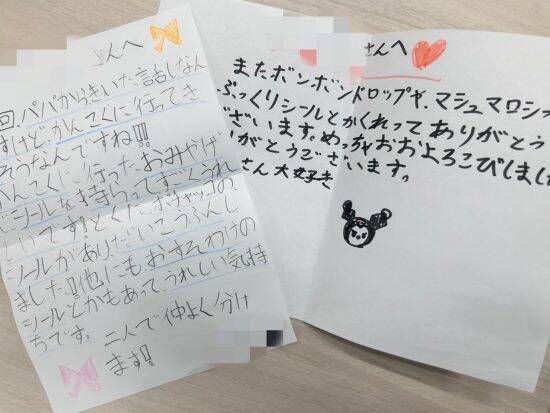 んへ
回、パパからきいた話しなん
すけど、かんてくに行ってき
そうなんですね!!!
かんてくに行ったおみやげ
にシールを持らってすごくうれ
しいです!とくに、ポチャッコの、
シールがありだいこうふんし
ました!!他にも、おすそわけの
シールとかもあって、うれしい気持
ちです。
二人で仲よく分け
ます!
さんへ
またボンボンドロップや、マシュマロシー
ぷっくりシールとかくれってありがとう
ございます。めっちゃおおよろこびしまし
りがとうございます。
さん大好き